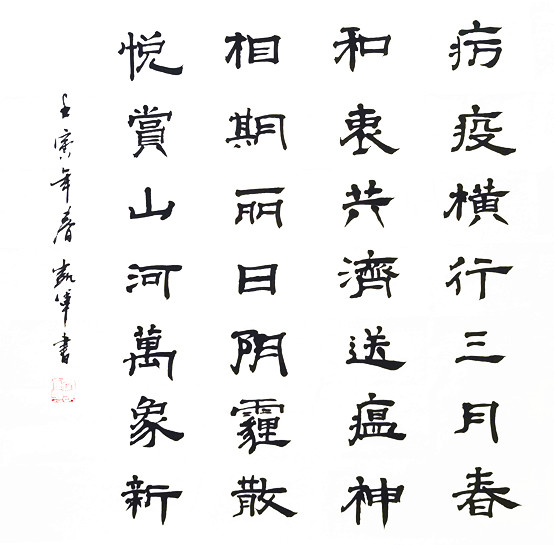 疠疫横行三月春
和衷共濟送瘟神
相期丽日阴霾散
悦賞山河萬象新
壬寅年春書